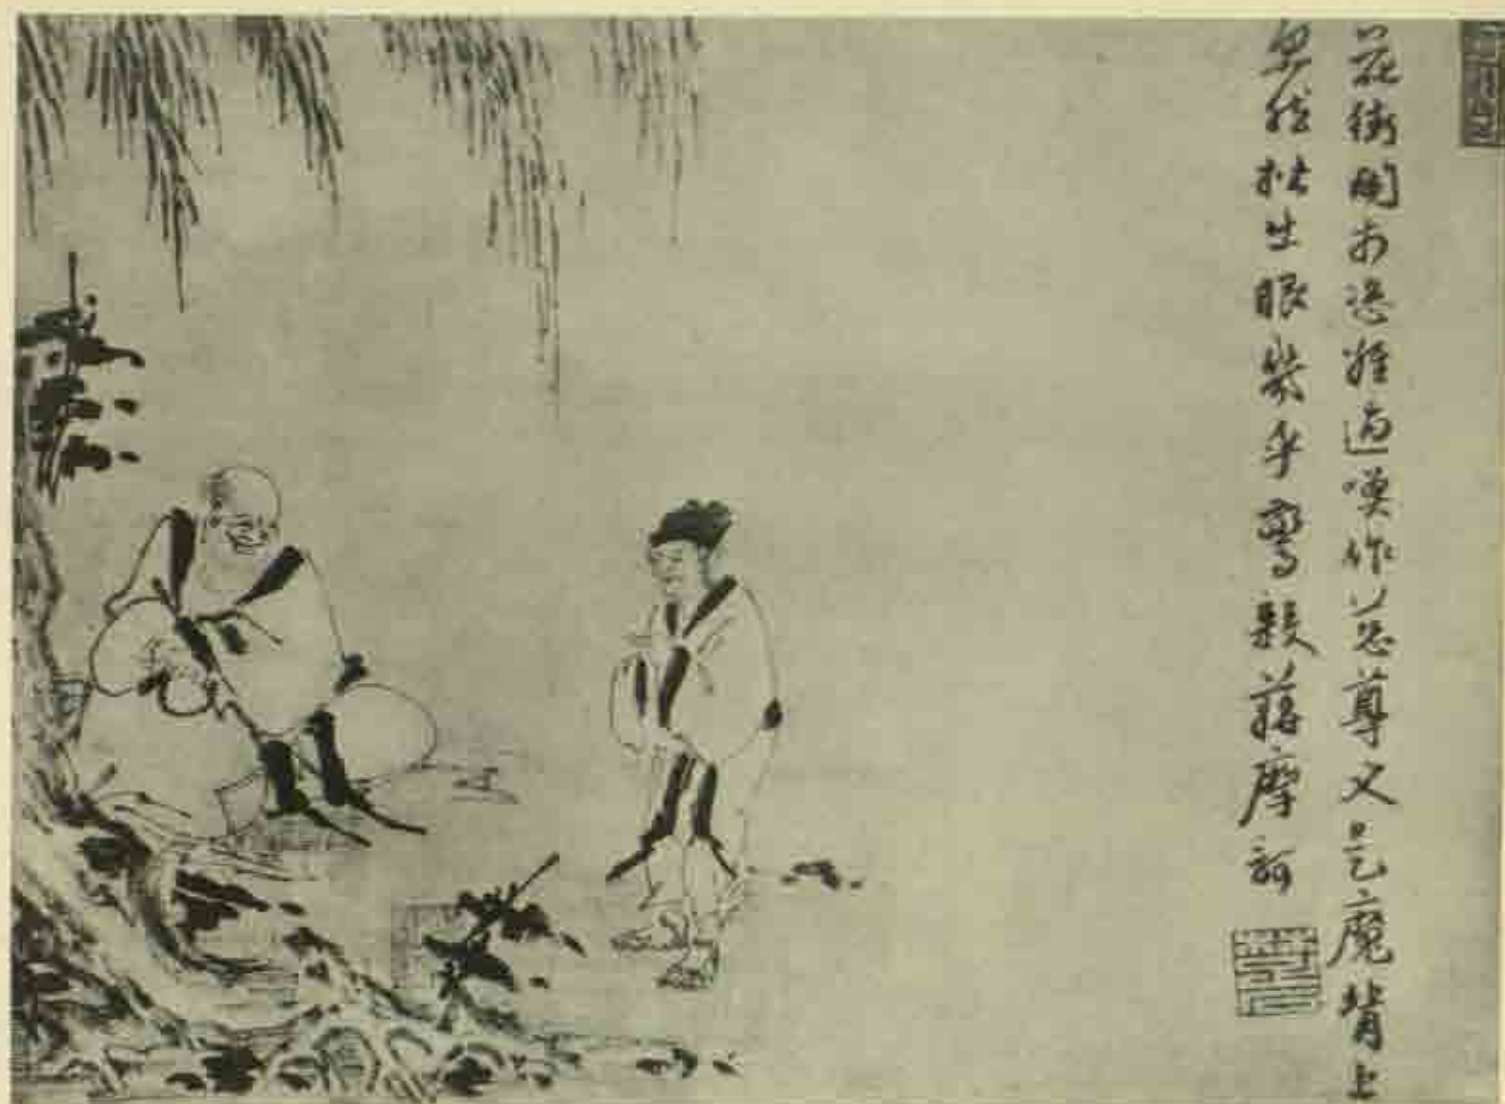 花街鬧市恣經過喚作慈尊又是魔背上
忽然出眼幾乎驚殺蒋摩訶